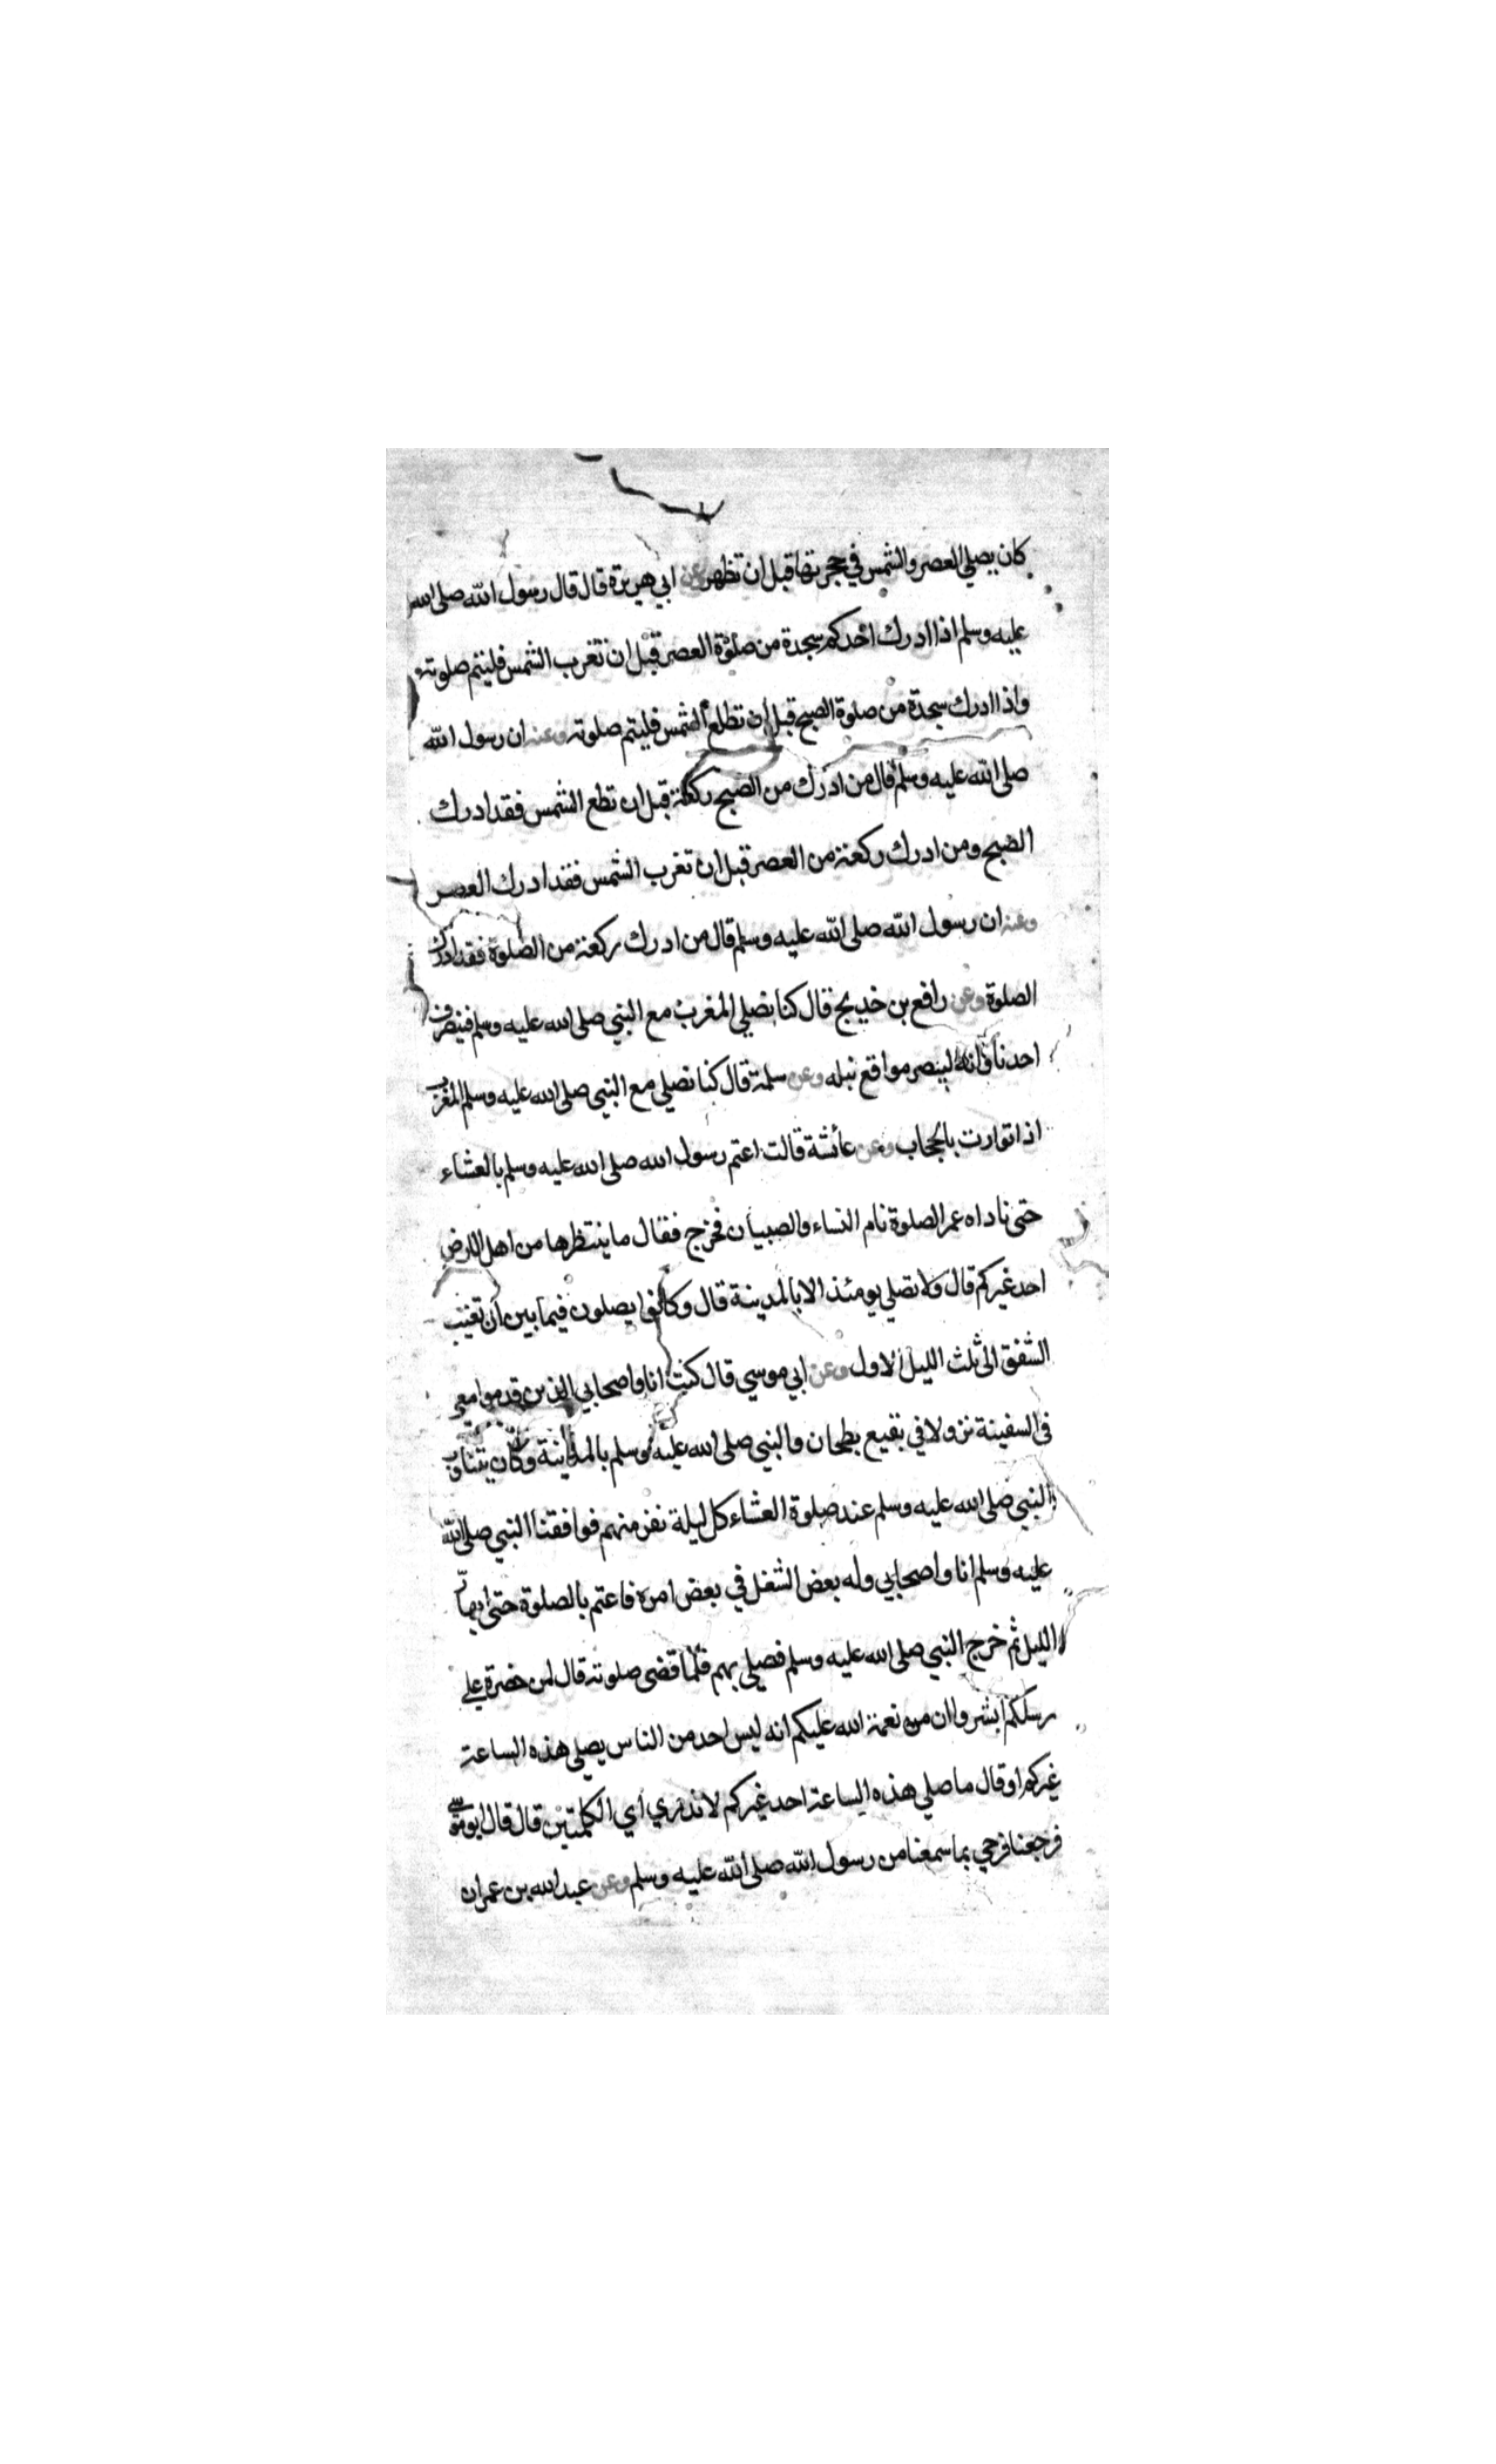 كان يصلي العصر والشمس في حجرتها قبل ان تظهر وعن ابي هريرة قال قال رسول الله صلى الله
عليه وسلم اذا ادرك احدكم سجدة من صلوة العصر قبل ان تغرب الشمس فليتم صلوته
واذا ادرك سجدة من صلوة الصبح قبل ان تطلع الشمس فليتم صلوته وعنه ان رسول الله
صلى الله عليه وسلم قال من ادرك من الصبح ركعة قبل ان تطع الشمس فقد ادرك
الصبح ومن ادرك ركعة من العصر قبل ان تغرب الشمس فقد ادرك العصر
وعنه ان رسول الله صلى الله عليه وسلم قال من ادرك ركعة من الصلوة فقد ادرك
الصلوة وعن رافع بن خديج قال كنا نصلي المغرب مع النبي صلى الله عليه وسلم فينصرف
احدنا وانه ليبصر مواقع نبله وعن سلمة قال كنا نصلي مع النبي صلى الله عليه وسلم المغرب
اذا توارت بالحجاب وعن عائشة قالت اعتم رسول الله صلى الله عليه وسلم بالعشاء
حتى ناداه عمر الصلوة نام النساء والصبيان فخرج فقال ما ينتظرها من اهل الارض
احد غيركم قال ولا تصلي يومئذ الا بالمدينة قال وكانوا يصلون فيما بين ان تغيب
الشفق الى ثلث الليل الاول وعن ابي موسي قال كنت انا واصحابي الذين قدموا معي
في السفينة نزولا في بقيع بطحان والنبي صلى الله عليه وسلم بالمدينة وكان يتناوب
النبي صلى الله عليه وسلم عند صلوة العشاء كل ليلة نفر منهم فوافقنا النبي صلى الله
عليه وسلم انا واصحابي وله بعض الشغل في بعض امره فاعتم بالصلوة حتى ابهار
الليل ثم خرج النبي صلى الله عليه وسلم فصلي بهم فلما قضى صلوته قال لمن حضره علي
رسلكم ابشروا ان من نعمة الله عليكم انه ليس احد من الناس يصلي هذه الساعة
غيركم او قال ما صلي هذه الساعة احد غيركم لا ندري اي الكلمتين قال قال ابو موسى
فرجعنا فرحي بما سمعنا من رسول الله صلى الله عليه وسلم وعن عبد الله بن عمران